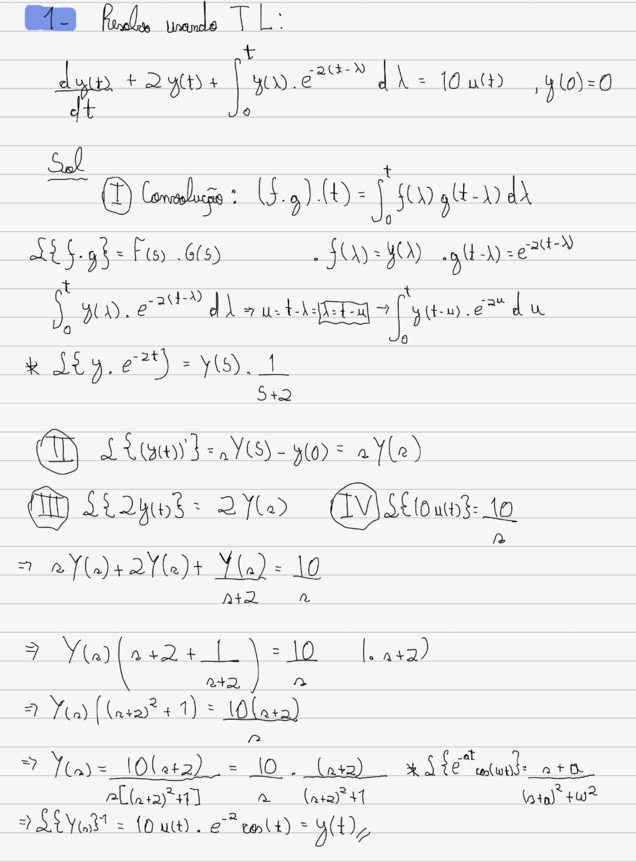 1- Resolva usando TL:
dy(t)/dt + 2y(t) + ∫₀ᵗ y(λ).e^{-2(t-λ)} dλ = 10u(t) , y(0)=0
Sol
I Convolução: (f.g).(t) = ∫₀ᵗ f(λ)g(t-λ)dλ
ℒ{f.g} = F(s).G(s) .f(λ)=y(λ) .g(t-λ)=e^{-2(t-λ)}
∫₀ᵗ y(λ).e^{-2(t-λ)} dλ ⇒ u=t-λ=λ=t-u → ∫₀ᵗ y(t-u).e^{-2u} du
* ℒ{y.e^{-2t}} = Y(S). 1/(S+2)
II ℒ{(y(t))'} = sY(S) - y(0) = sY(s)
III ℒ{2y(t)} = 2Y(s) IV ℒ{10u(t)} = 10/s
⇒ sY(s)+2Y(s)+ Y(s)/(s+2) = 10/s
⇒ Y(s)(s+2+ 1/(s+2)) = 10/s (.s+2)
⇒ Y(s)((s+2)²+1) = 10(s+2)/s
⇒ Y(s) = 10(s+2)/(s[(s+2)²+1]) = 10/s . (s+2)/((s+2)²+1) * ℒ{e^{-at}cos(wt)} = (s+a)/((s+a)²+w²)
⇒ ℒ{Y(s)}⁻¹ = 10u(t).e^{-2}cos(t) = y(t)//